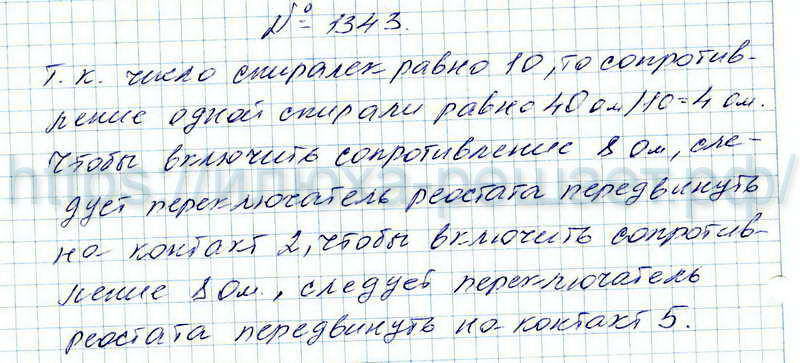 № 1343.
Т. к. число спиралек равно 10, то сопротив-
ление одной спирали равно 40 ом/10=4 ом.
Чтобы включить сопротивление 8 ом, сле-
дует переключатель реостата передвинуть
на контакт 2, чтобы включить сопротив-
ление 8 ом., следует переключатель
реостата передвинуть на контакт 5.